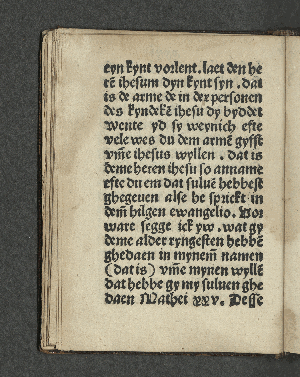 eyn kynt vorlent. laet den he
rē ihesum dyn kynt syn. dat
is de arme de in der personen
des kyndekē ihesu dy byddet
Wente yd sy weynich efte
vele wes du dem armē gyfft
vm̄e ihesus wyllen. dat is
deme heren ihesu so anname
efte du em dat suluē hebbest
ghegeuen alse he sprickt in
dem̄ hilgen ewangelio. Vor
ware segge ick yw. wat gy
deme alder ryngesten hebbē
ghedaen in mynem̄ namen
(dat is) vm̄e mynen wyllē
dat hebbe gy my suluen ghe
daen Mathei xxv. Desse